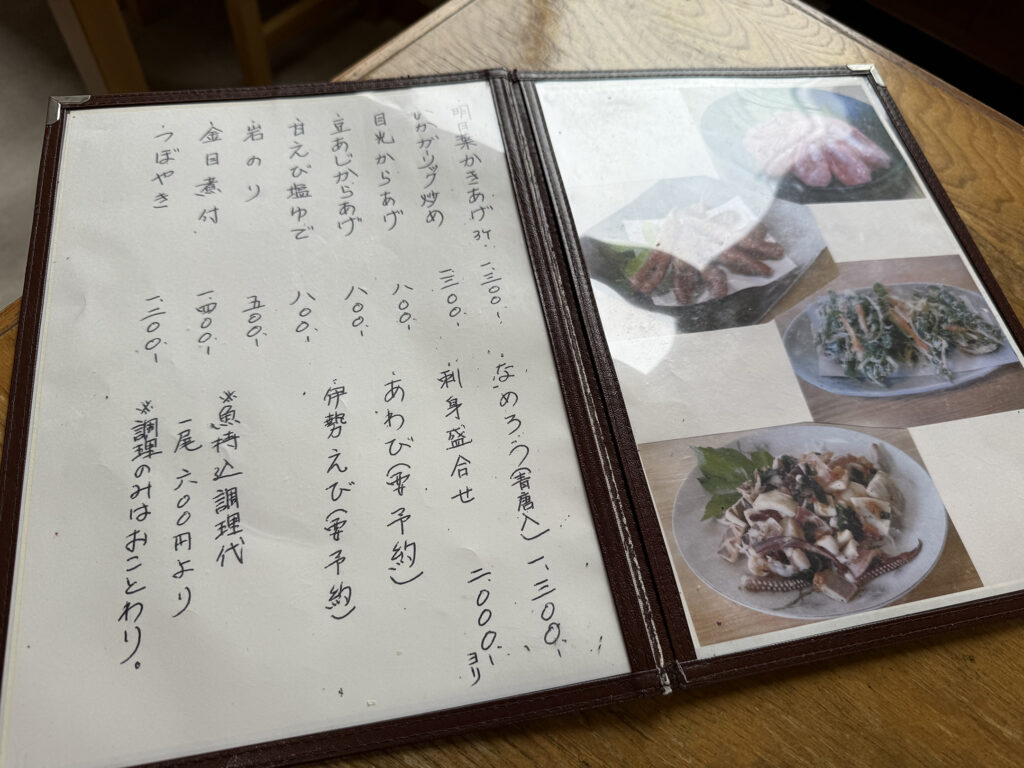 明日葉かきあげ 3ケ 一、三〇〇.-
いかガーリック炒め 一三〇〇.-
目光からあげ 八〇〇.-
豆あじからあげ 八〇〇.-
甘えび塩ゆで 八〇〇.-
岩のり 五〇〇.-
金目煮付 一四〇〇.-
つぼやき 一二〇〇.-
なめろう(青唐入) 一、三〇〇.-
刺身盛合せ 二、〇〇〇.-ヨリ
あわび(要予約)
伊勢えび(要予約)
※魚持込調理代
一尾 六〇〇円より
※調理のみはおことわり。